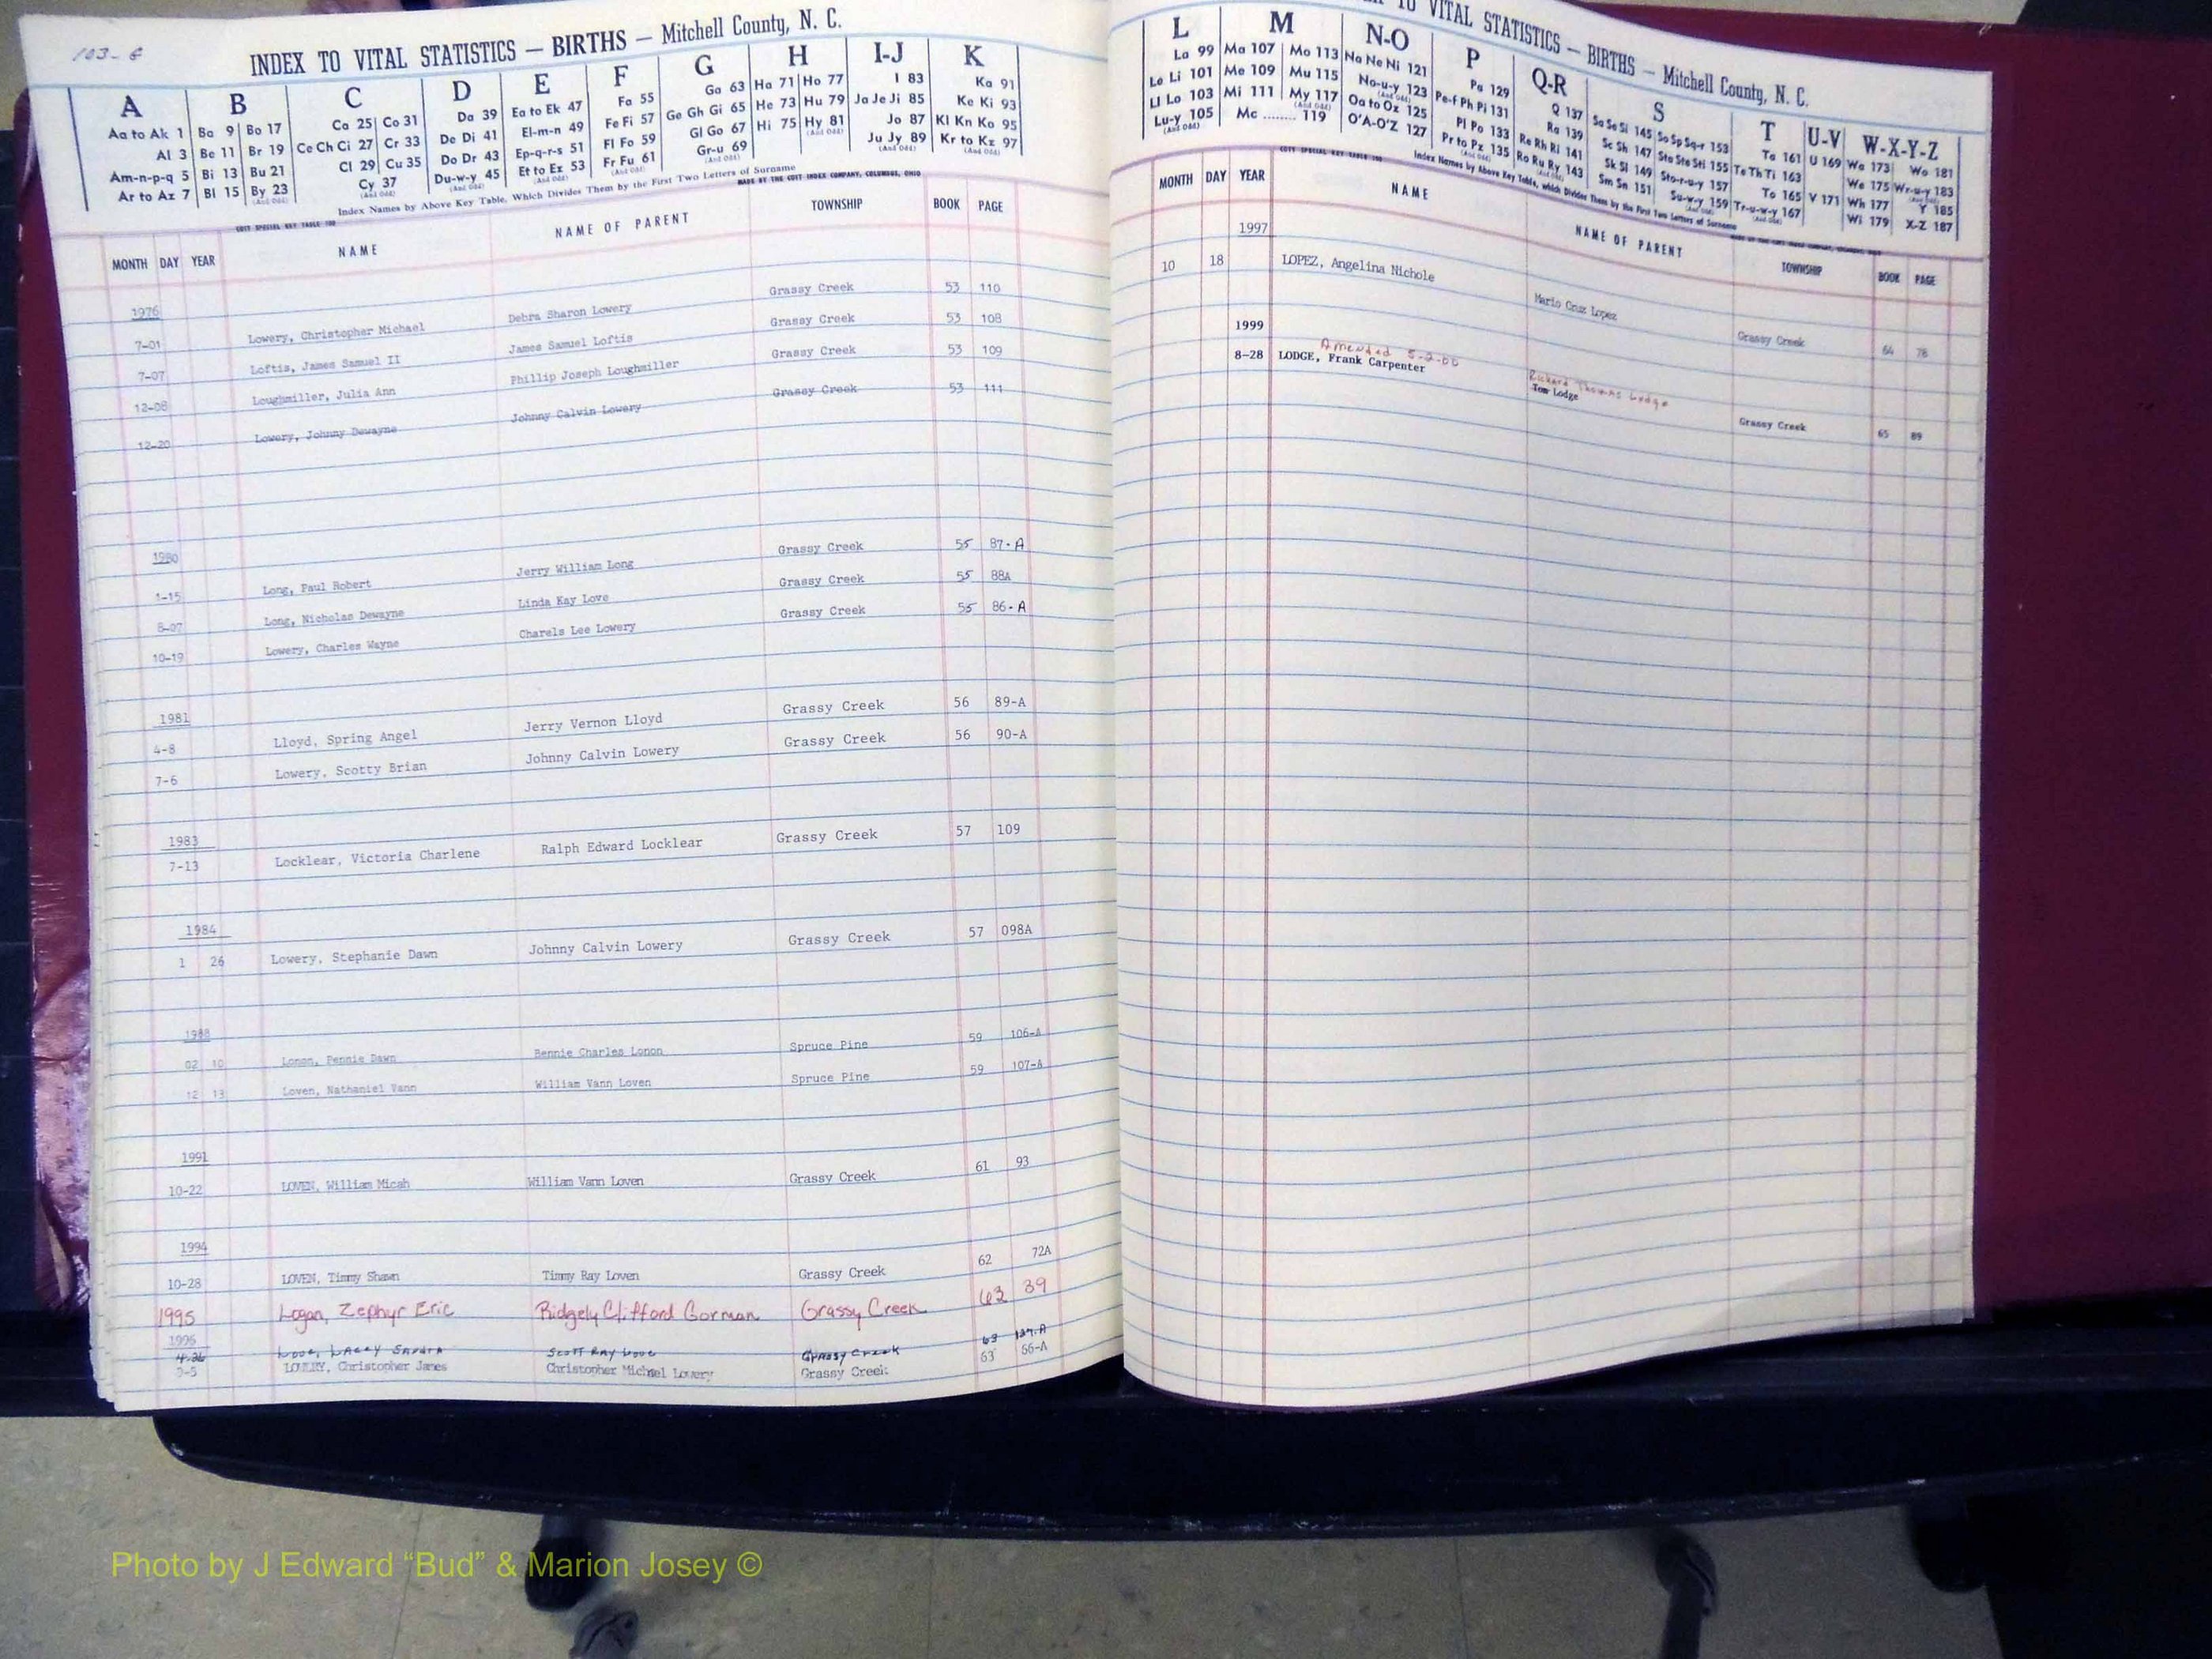 103-G
INDEX TO VITAL STATISTICS — BIRTHS — Mitchell County, N. C.
A B C D E F G H I-J K
Aa to Ak 1 Ba 9 Bo 17 Ca 25 Co 31 Da 39 Ea to Ek 47 Fa 55 Ga 63 Ha 71 Ho 77 I 83 Ka 91
Al 3 Be 11 Br 19 Ce Ch Ci 27 Cr 33 De Di 41 El-m-n 49 Fe Fi 57 Ge Gh Gi 65 He 73 Hu 79 Ja Je Ji 85 Ke Ki 93
Am-n-p-q 5 Bi 13 Bu 21 Cl 29 Cu 35 Do Dr 43 Ep-q-r-s 51 Fl Fo 59 Gl Go 67 Hi 75 Hy 81 (And Odd) Jo 87 Kl Kn Ko 95
Ar to Az 7 Bl 15 By 23 (And Odd) Cy 37 (And Odd) Du-w-y 45 (And Odd) Et to Ez 53 (And Odd) Fr Fu 61 (And Odd) Gr-u 69 (And Odd) Ju Jy 89 (And Odd) Kr to Kz 97 (And Odd)
Index Names by Above Key Table, Which Divides Them by the First Two Letters of Surname
COTT SPECIAL KEY TABLE 100 MADE BY THE COTT INDEX COMPANY, COLUMBUS, OHIO
MONTH DAY YEAR NAME NAME OF PARENT TOWNSHIP BOOK PAGE
1976
7-01 Lowery, Christopher Michael Debra Sharon Lowery Grassy Creek 53 110
7-07 Loftis, James Samuel II James Samuel Loftis Grassy Creek 53 108
12-08 Loughmiller, Julia Ann Phillip Joseph Loughmiller Grassy Creek 53 109
12-20 Lowery, Johnny Dewayne Johnny Calvin Lowery Grassy Creek 53 111
1980
1-15 Long, Paul Robert Jerry William Long Grassy Creek 55 87-A
8-07 Long, Nicholas Dewayne Linda Kay Love Grassy Creek 55 88A
10-19 Lowery, Charles Wayne Charels Lee Lowery Grassy Creek 55 86-A
1981
4-8 Lloyd, Spring Angel Jerry Vernon Lloyd Grassy Creek 56 89-A
7-6 Lowery, Scotty Brian Johnny Calvin Lowery Grassy Creek 56 90-A
1983
7-13 Locklear, Victoria Charlene Ralph Edward Locklear Grassy Creek 57 109
1984
1 26 Lowery, Stephanie Dawn Johnny Calvin Lowery Grassy Creek 57 098A
1988
02 10 Lonon, Pennie Dawn Bennie Charles Lonon Spruce Pine 59 106-A
12 13 Loven, Nathaniel Vann William Vann Loven Spruce Pine 59 107-A
1991
10-22 LOVEN, William Micah William Vann Loven Grassy Creek 61 93
1994
10-28 LOVEN, Timmy Shawn Timmy Ray Loven Grassy Creek 62 72A
1995 Logan, Zephyr Eric Ridgely Clifford Gorman Grassy Creek 63 39
1995
4-26 Love, Lacey Sandra Scott Ray Love Grassy Creek 63 127-A
LOWERY, Christopher James Christopher Michael Lowery Grassy Creek 63 66-A
TO VITAL STATISTICS — BIRTHS — Mitchell County, N. C.
L M N-O P Q-R S T U-V W-X-Y-Z
La 99 Ma 107 Mo 113 Na Ne Ni 121 Pa 129 Q 137 Sa Se Si 145 So Sp Sq-r 153 Ta 161 U 169 Wa 173 Wo 181
Le Li 101 Me 109 Mu 115 No-u-y 123 (And Odd) Pe-f Ph Pi 131 Ra 139 Sc Sh 147 Sta Ste Sti 155 Te Th Ti 163 We 175 Wr-u-y 183 (And Odd)
Ll Lo 103 Mi 111 My 117 (And Odd) Oa to Oz 125 Pl Po 133 Re Rh Ri 141 Sk Sl 149 Sto-r-u-y 157 To 165 V 171 Wh 177 Y 185
Lu-y 105 (And Odd) Mc ........ 119 O'A-O'Z 127 Pr to Pz 135 (And Odd) Ro Ru Ry 143 (And Odd) Sm Sn 151 Su-w-y 159 (And Odd) Tr-u-w-y 167 (And Odd) Wi 179 X-Z 187
COTT SPECIAL KEY TABLE 100 Index Names by Above Key Table, which Divides Them by the First Two Letters of Surname
MONTH DAY YEAR NAME NAME OF PARENT TOWNSHIP BOOK PAGE
1997
10 18 LOPEZ, Angelina Nichole Mario Cruz Lopez Grassy Creek 64 78
1999
Amended 5-2-00
Richard Thomas Lodge
8-28 LODGE, Frank Carpenter Tom Lodge Grassy Creek 65 89
Photo by J Edward “Bud” & Marion Josey ©